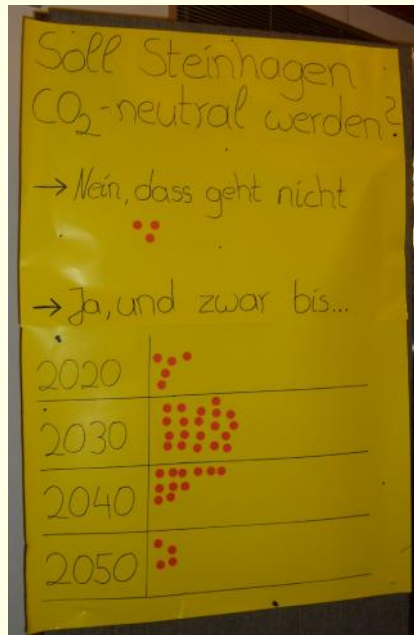 Soll Steinhagen
CO₂-neutral werden?
→ Nein, dass geht nicht
→ Ja, und zwar bis...
2020
2030
2040
2050